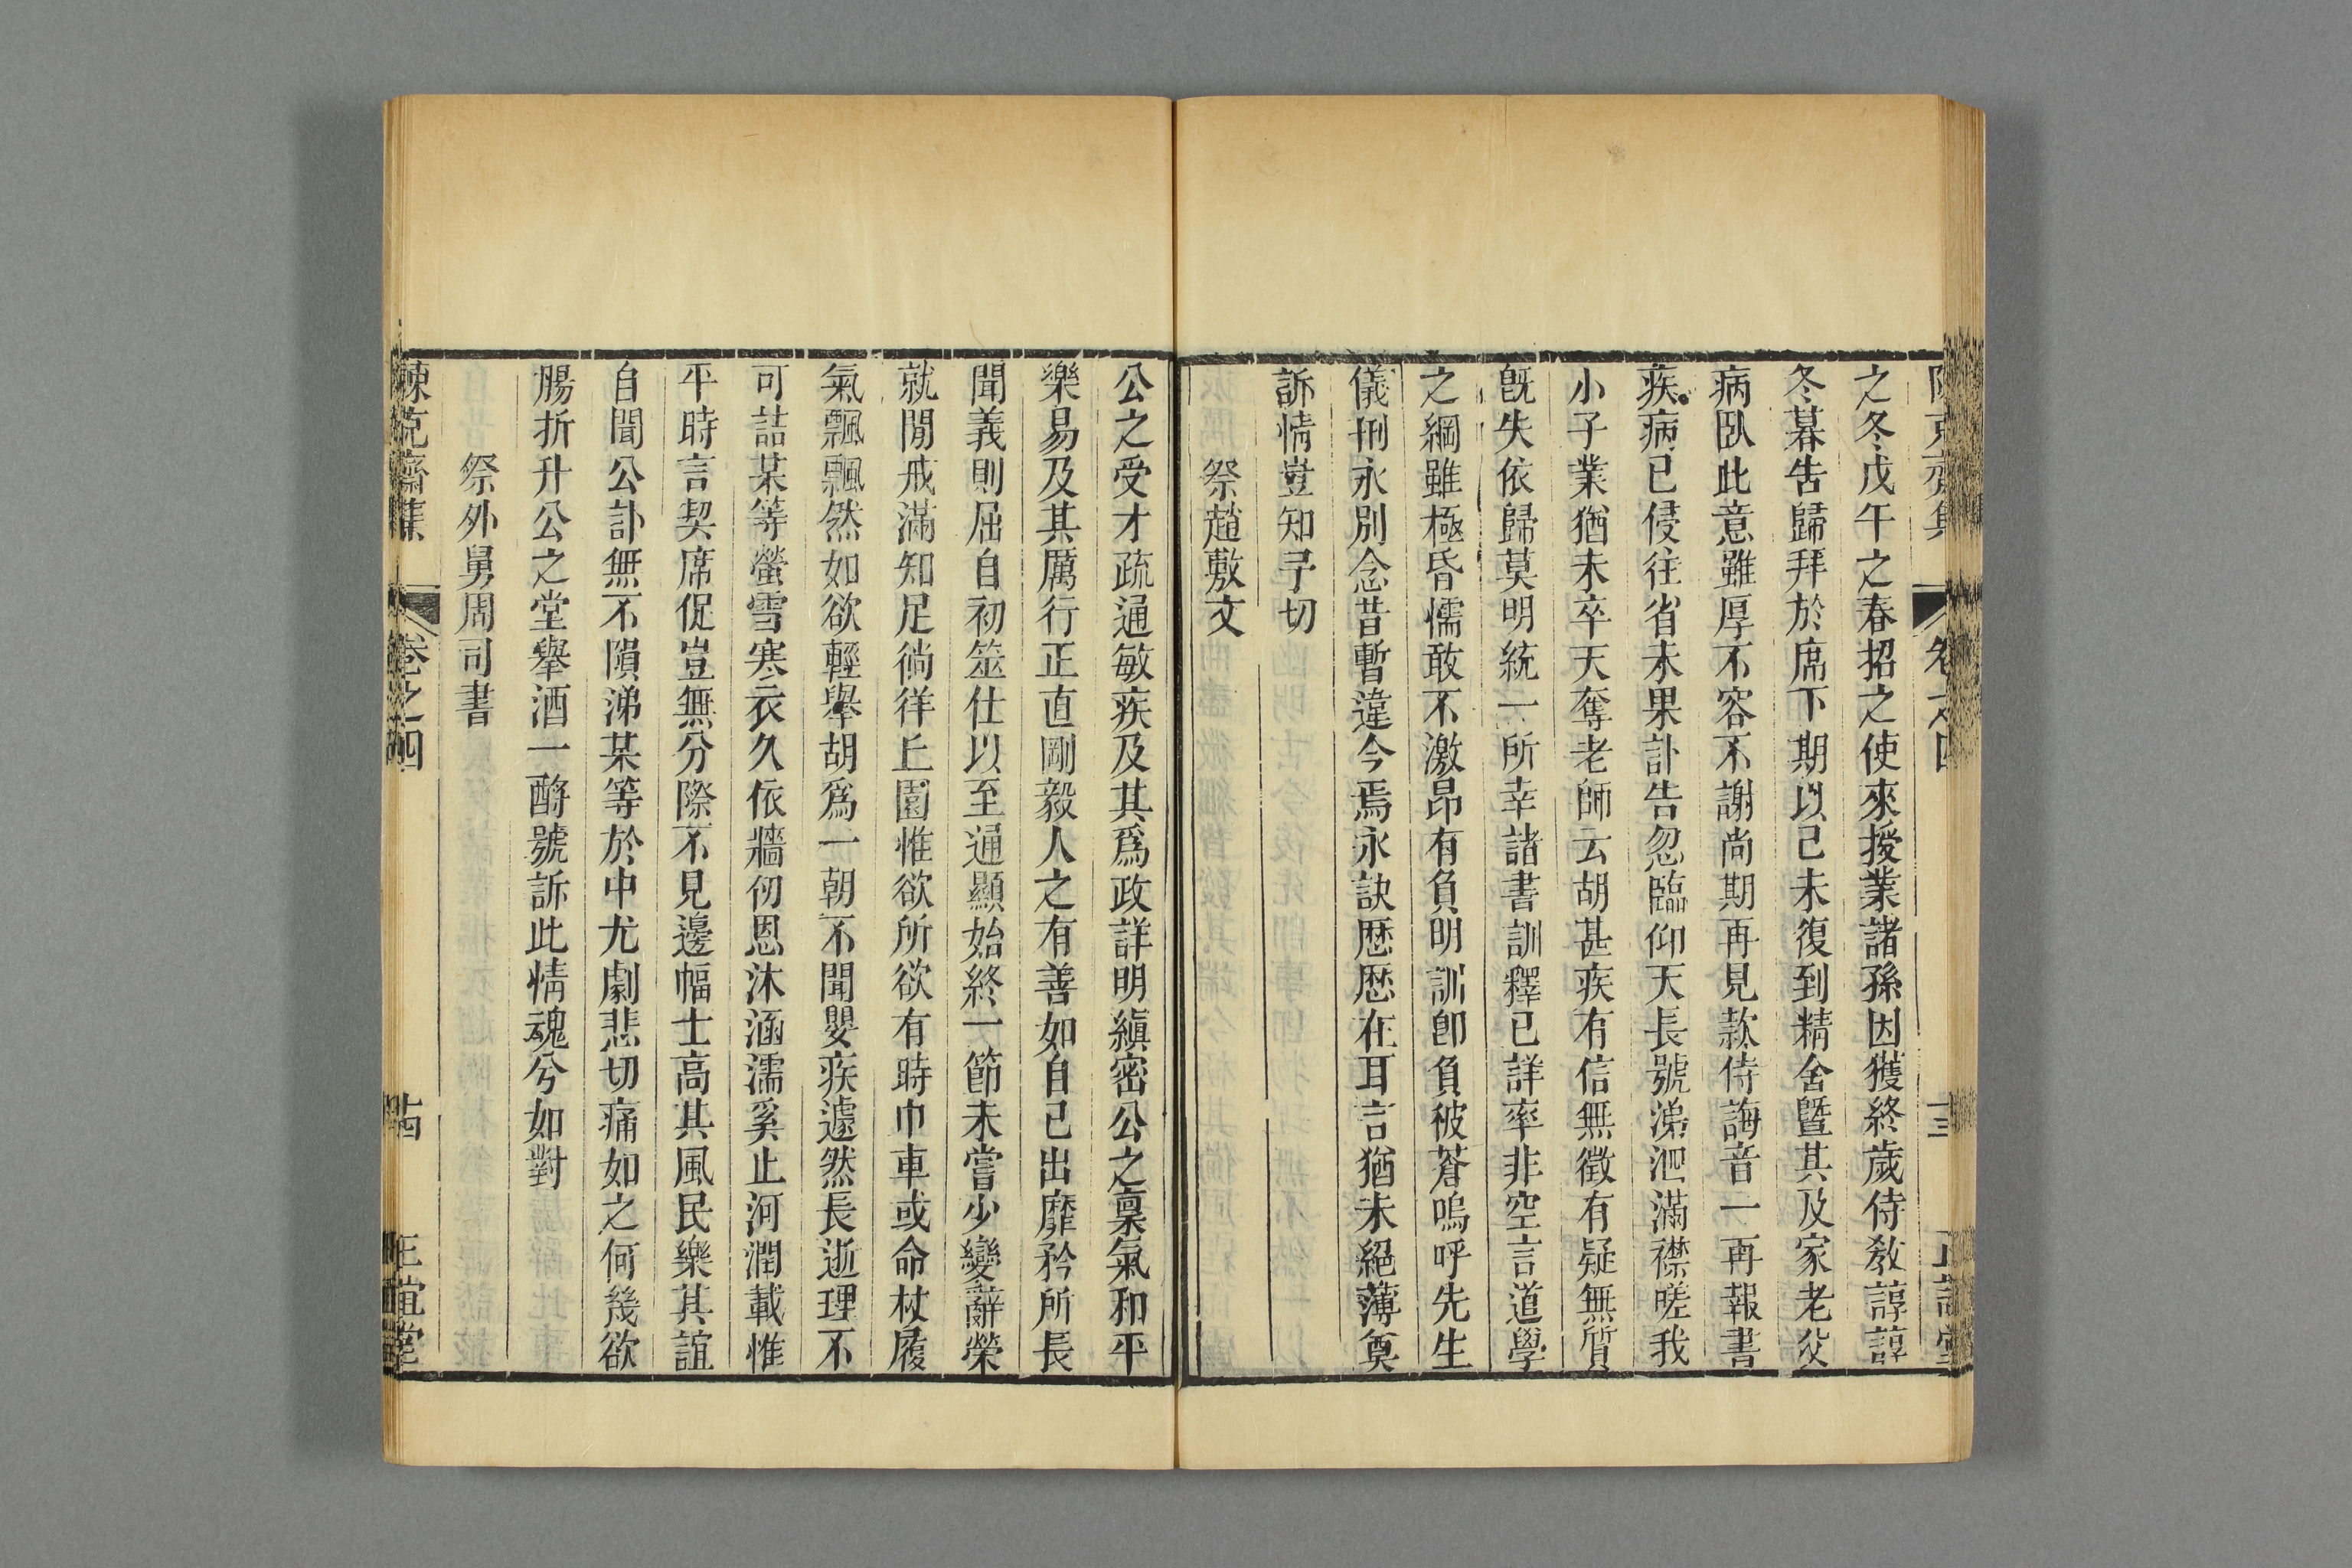 之冬戊午之春招之使來授業諸孫因獲終歲侍敎諄諄
冬暮吿歸拜於席下期以己未復到精舍曁其及家老父
病臥此意雖厚不容不謝尚期再見款侍誨音一再報書
疾病已侵往省未果訃告忽臨仰天長號涕泗滿襟嗟我
小子業猶未卒天奪老師云胡甚疾有信無徵有疑無質
旣失依歸莫明統一所幸諸書訓釋已詳率非空言道學
之綱雖極昏懦敢不激昂有負明訓卽負彼蒼嗚呼先生
儀刑永別念昔暫違今焉永訣歷歷在耳言猶未絕薄奠
訴情豈知予切
祭趙敷文
公之受才疏通敏疾及其爲政詳明縝密公之稟氣和平
樂易及其厲行正直剛毅人之有善如自己出靡矜所長
聞義則屈自初筮仕以至通顯始終一節未嘗少變辭榮
就閒戒滿知足徜徉丘園惟欲所欲有時巾車或命杖履
氣飄飄然如欲輕舉胡爲一朝不聞嬰疾遽然長逝理不
可詰某等螢雪寒衣久依牆仞恩沐涵濡奚止河潤載惟
平時言契席促豈無分際不見邊幅士高其風民樂其誼
自聞公訃無不隕涕某等於中尤劇悲切痛如之何幾欲
腸折升公之堂舉酒一酹號訴此情魂兮如對
祭外舅周司書
陳克齋集 卷之四 十四 正誼堂